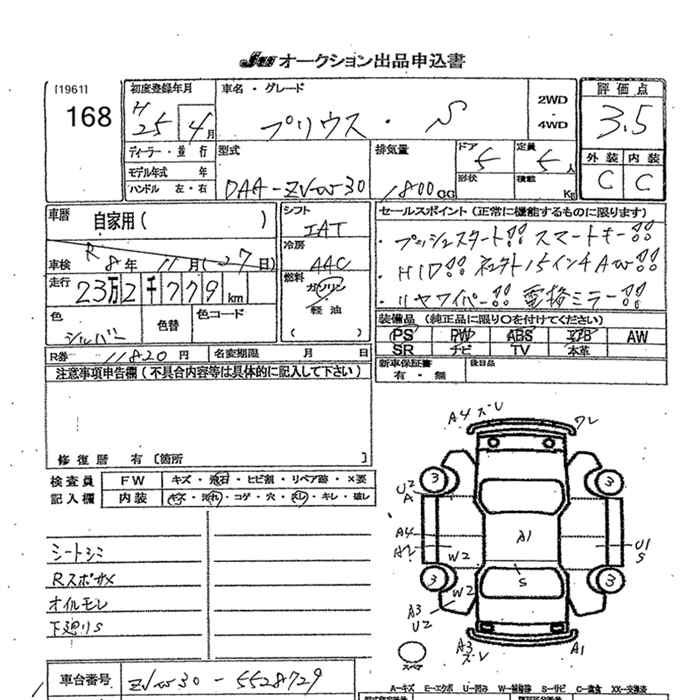 JU オークション出品申込書
[1961]
168
初度登録年月
H 25 4月
車名・グレード
プリウス・S
2WD
・
4WD
評価点
3.5
外装 内装
C C
ディーラー・並行
モデル年式 年
ハンドル 左・右
型式
DAA-ZVW30
排気量
1800CC
ドア 5
形状
定員 5人
積載 Kg
車歴 自家用( )
車検 R8年11月(27日)
走行 23万2千779km
色 シルバー
色替
色コード
R券 11820円
名変期限 月 日
シフト
IAT
冷房
AAC
燃料
ガソリン
軽油
( )
セールスポイント (正常に機能するものに限ります)
・プッシュスタート!! スマートキー!!
・HID!! 社外15インチAW!!
・リヤワイパー!! 電格ミラー!!
装備品 (純正品に限り○を付けてください)
PS PW ABS エアB AW
SR ナビ TV 本革
新車保証書
有・無
後日品
注意事項申告欄 (不具合内容等は具体的に記入して下さい)
修復歴 有 〔箇所
検査員
記入欄
FW キズ・飛石・ヒビ割・リペア跡・×要
内装 キズ・汚れ・コゲ・穴・スレ・キレ・破レ
シートシミ
Rスポサメ
オイルモレ
下廻りS
A4 ズレ
ワレ
3
3
U2
A
A4
A2
W2
A1
U1
S
S
3
3
W2
A3
U2
A3
ズレ
A1
スペア
車台番号 ZVW30-5528729
A-キズ E-エクボ U-凹み W-補修跡 S-サビ C-腐食 XX-交換済